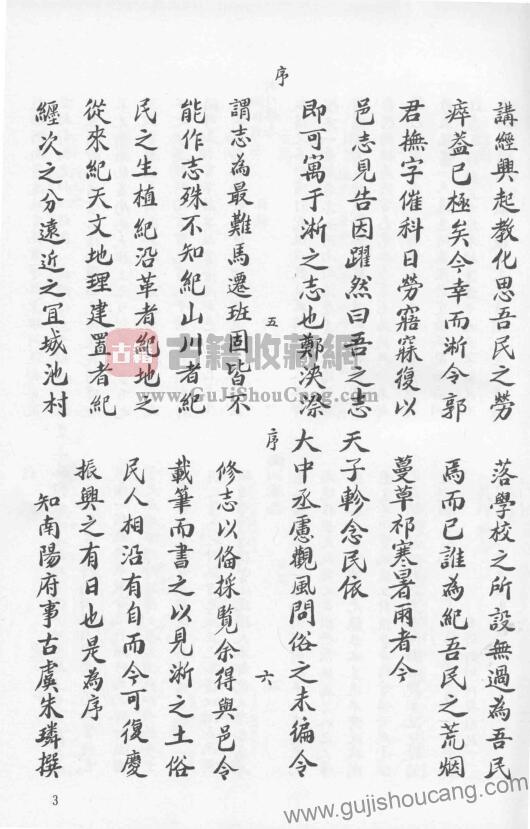 序
講經興起教化思吾民之勞
瘁葢已極矣今幸而淅令郭
君撫字催科日勞寤寐復以
邑志見告因躍然曰吾之志
即可寓于淅之志也鄭浹漈
謂志為最難馬遷班固皆不
能作志殊不知紀山川者紀
民之生植紀沿革者紀地之
從來紀天文地理建置者紀
纏次之分遠近之宜城池村
五
序
落學校之所設無過為吾民
焉而已誰為紀吾民之荒烟
蔓草祁寒暑雨者今
天子軫念民依
大中丞慮觀風問俗之未編令
修志以偹採覧余得與邑令
載筆而書之以見淅之土俗
民人相沿有自而今可復慶
振興之有日也是為序
知南陽府事古虞朱璘撰
六
3
古籍
古籍收藏網
www.GuJiShouCang.com
www.gujishoucang.com